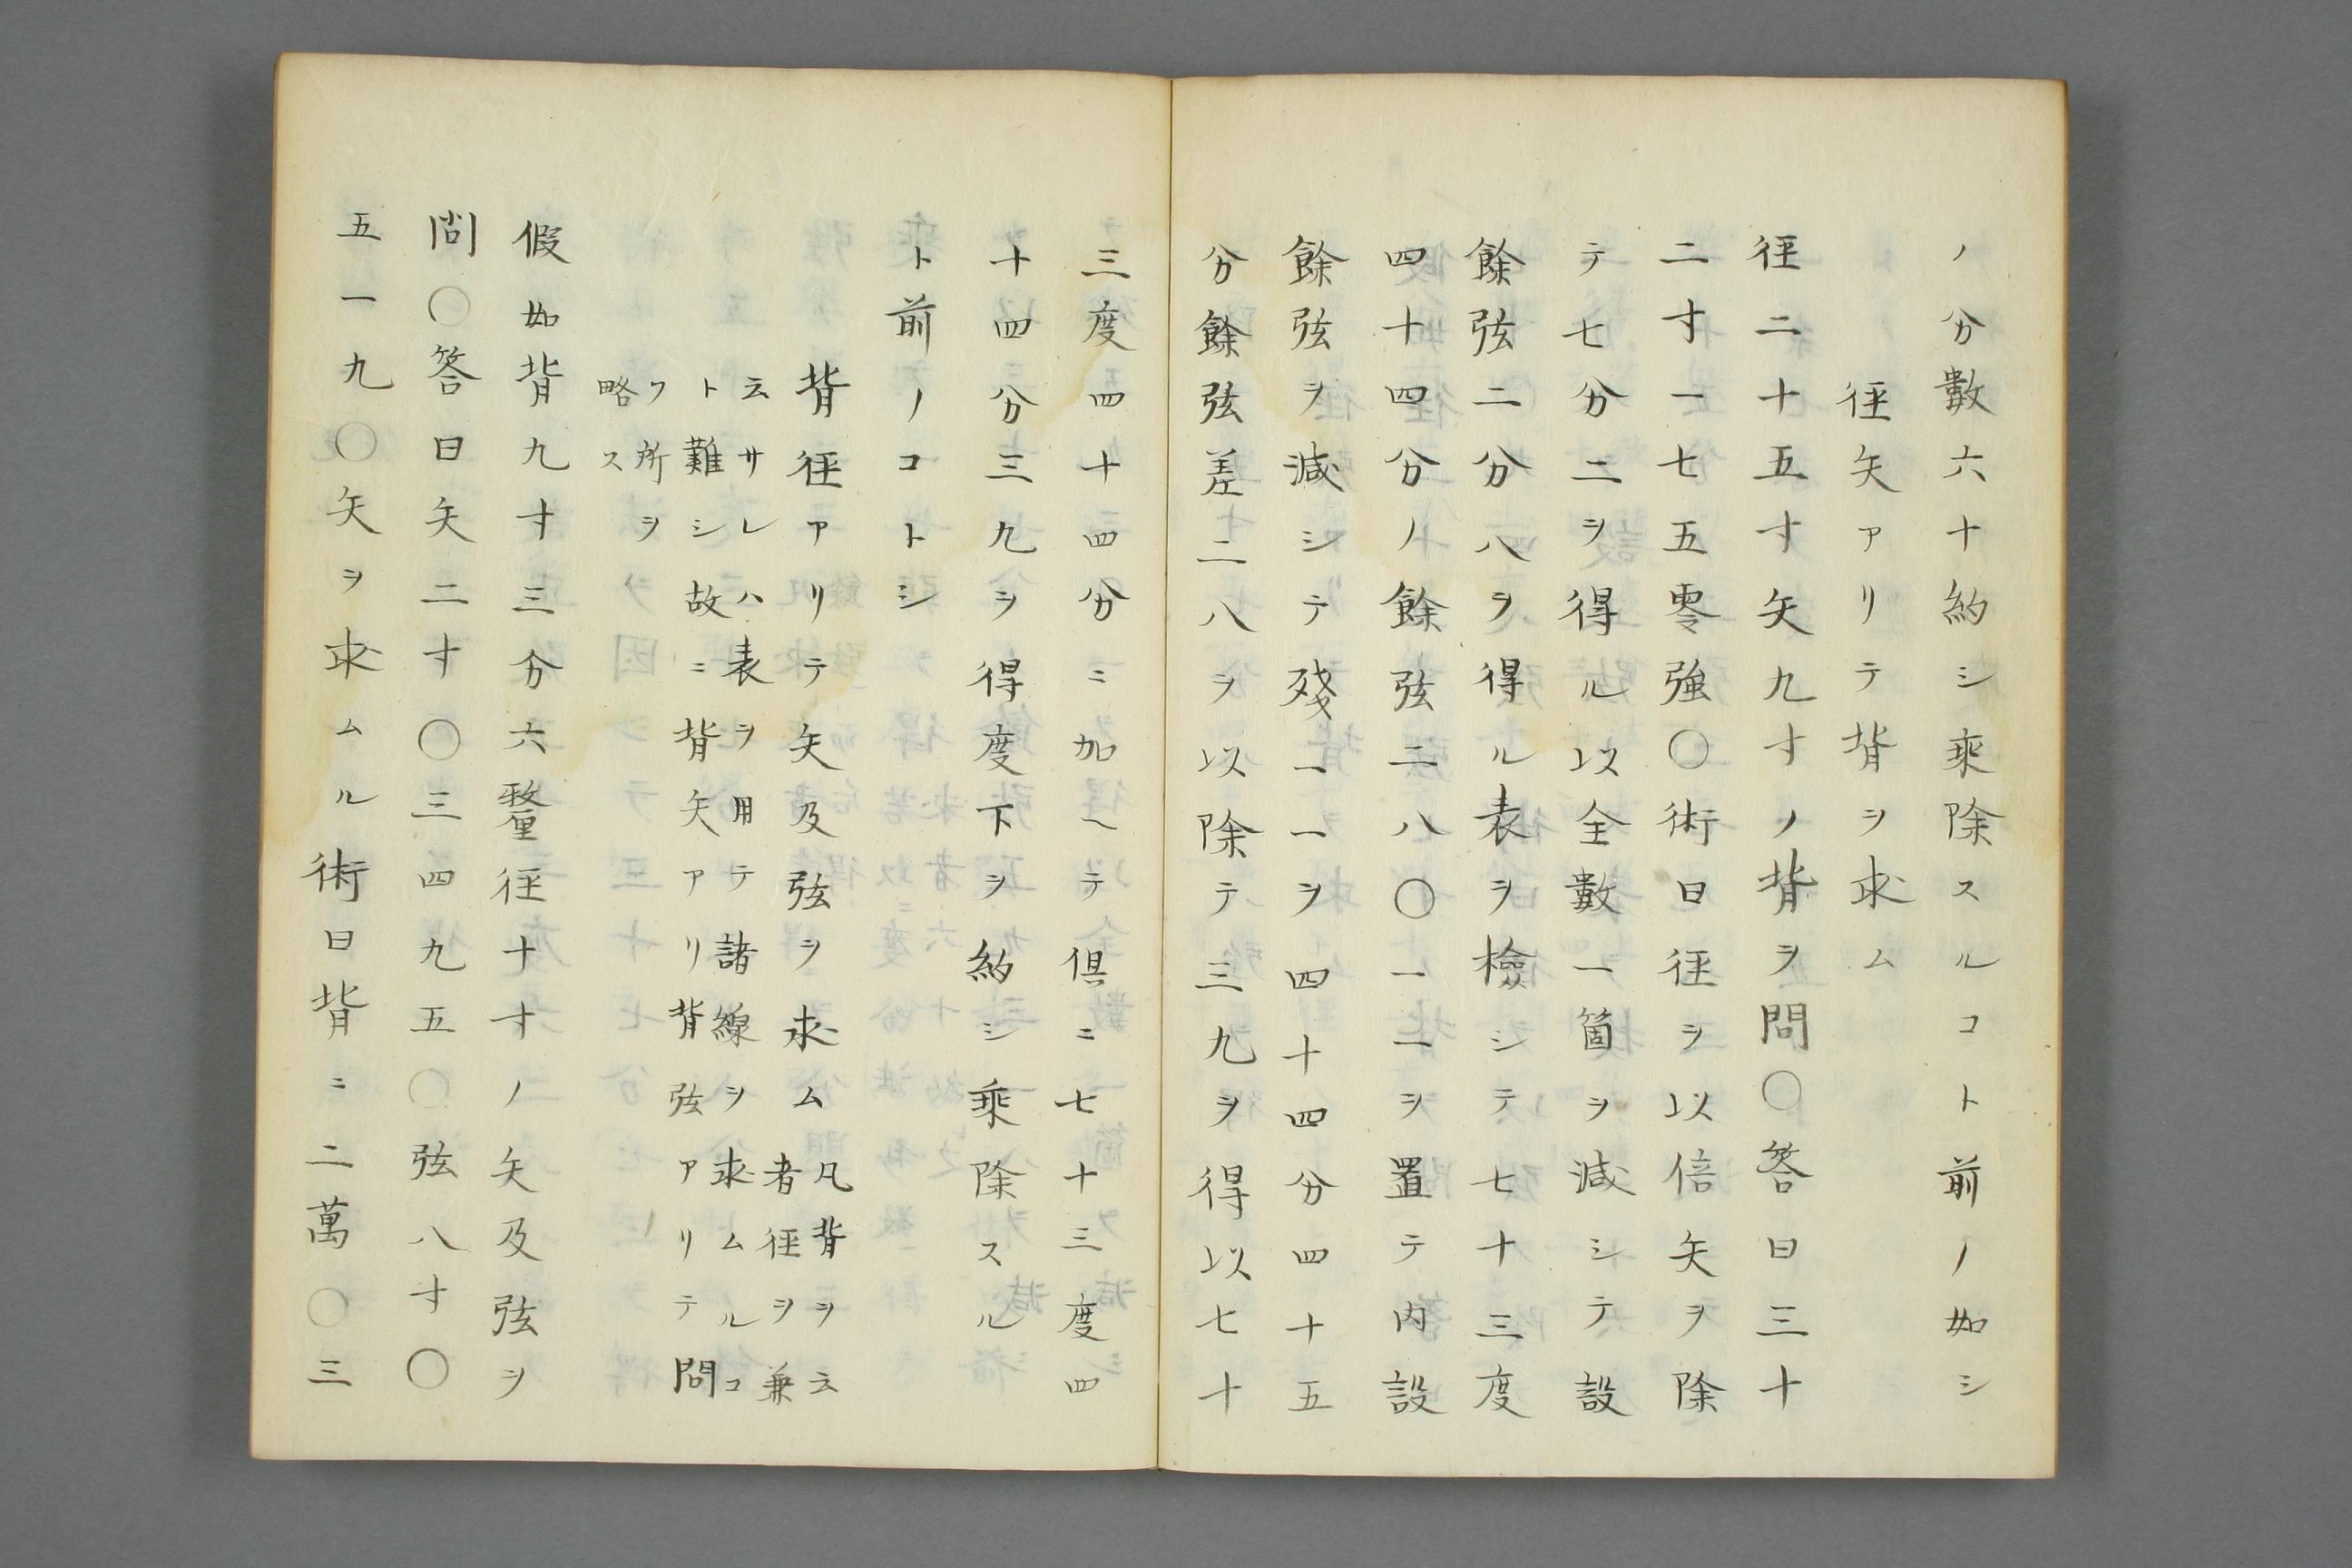 ノ分數六十約シ乘除スルコト前ノ如シ
徑矢アリテ背ヲ求ム
徑二十五寸矢九寸ノ背ヲ問〇答曰三十
二寸一七五零強〇術曰徑ヲ以倍矢ヲ除
テ七分二ヲ得ル以全數一箇ヲ減シテ設
餘弦二分八ヲ得ル表ヲ檢シテ七十三度
四十四分ノ餘弦二八〇一二ヲ置テ内設
餘弦ヲ減シテ殘一一ヲ四十四分四十五
分餘弦差二八ヲ以除テ三九ヲ得以七十
三度四十四分ニ加ヘテ俱ニ七十三度四
十四分三九ヲ得度下ヲ約シ乘除スル
ト前ノコトシ
背徑アリテ矢及弦ヲ求ム
凡背ヲ云
者徑ヲ兼
云サレハ表ヲ用テ諸線ヲ求ムルコ
ト難シ故ニ背矢アリ背弦アリテ問
フ所ヲ
略ス
假如背九寸三分六釐徑十寸ノ矢及弦ヲ
問〇答曰矢二寸〇三四九五〇弦八寸〇
五一九〇矢ヲ求ムル術曰背ニ二萬〇三